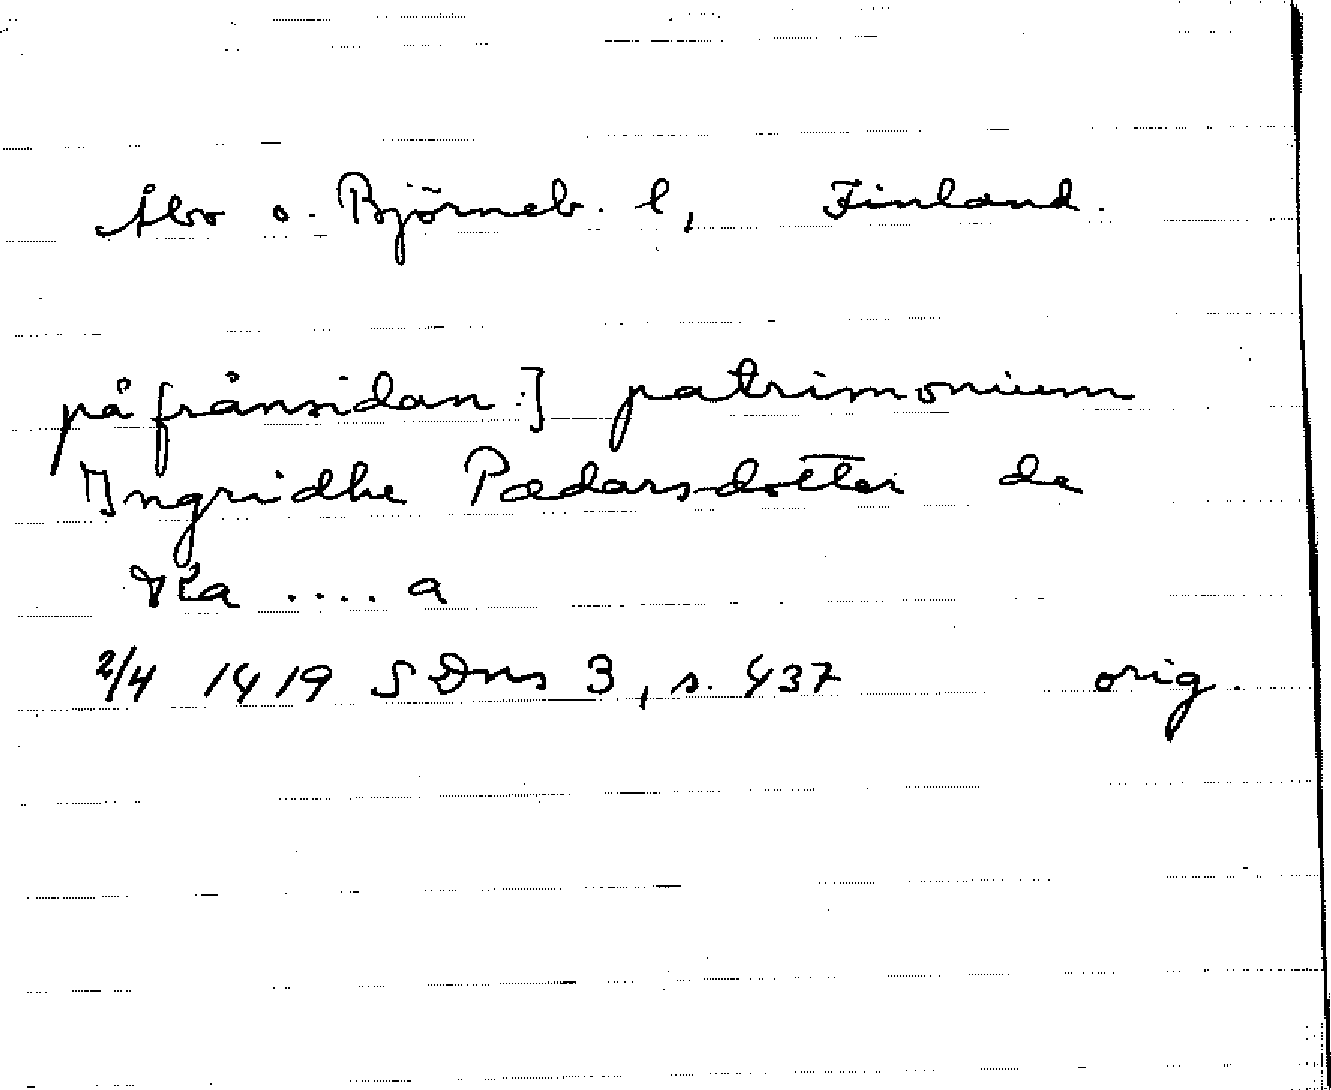 Åbo o. Björneb. l, Finland.
på frånsidan:] patrimonium
Ingridhe Pædarsdotter de
Ka .... a
2/4 1419 SDns 3, s. 437 orig.